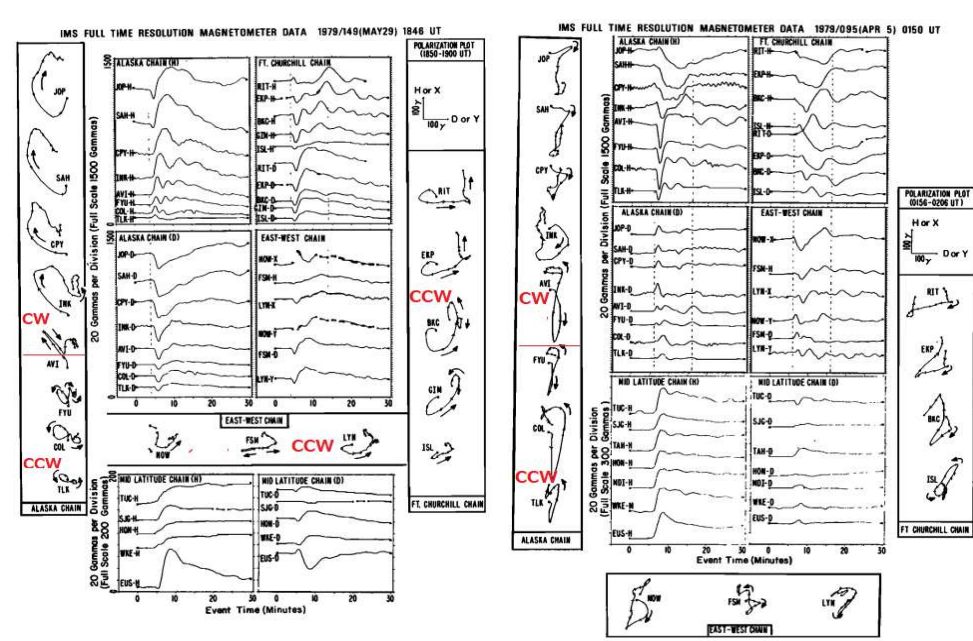 IMS FULL TIME RESOLUTION MAGNETOMETER DATA 1979/149(MAY29) 1846 UT
POLARIZATION PLOT
(1850-1900 UT)
H or X
100 γ
100 γ D or Y
JOP
SAH
CPY
INK
CW
AVI
FYU
COL
CCW
TLK
ALASKA CHAIN
20 Gammas per Division (Full Scale 1500 Gammas)
1500
0
ALASKA CHAIN(H)
JOP-H
SAH-H
CPY-H
INK-H
AVI-H
FYU-H
COL-H
TLK-H
FT. CHURCHILL CHAIN
RIT-H
EKP-H
BKC-H
GIM-H
ISL-H
RIT-D
EKP-D
BKC-D
GIM-D
ISL-D
1500
0
ALASKA CHAIN(D)
JOP-D
SAH-D
CPY-D
INK-D
AVI-D
FYU-D
COL-D
TLK-D
0 10 30
EAST-WEST CHAIN
NOW-X
FSM-H
LYN-X
NOW-Y
FSM-D
LYN-Y
0 10 30
RIT
EKP
CCW
BKC
GIM
ISL
FT. CHURCHILL CHAIN
EAST-WEST CHAIN
NOW
FSM
CCW
LYN
20 Gammas per Division
(Full Scale 200 Gammas)
200
0
MID LATITUDE CHAIN(H)
TUC-H
SJG-H
HON-H
WKE-H
EUS-H
MID LATITUDE CHAIN(D)
TUC-D
SJG-D
HON-D
WKE-D
EUS-D
0 10 30 0 10 30
Event Time (Minutes)
IMS FULL TIME RESOLUTION MAGNETOMETER DATA 1979/095(APR 5) 0150 UT
JOP
SAH
CPY
INK
AVI
CW
FYU
COL
CCW
TLK
ALASKA CHAIN
20 Gammas per Division (Full Scale 1500 Gammas)
ALASKA CHAIN(H)
JOP-H
SAH-H
CPY-H
INK-H
AVI-H
FYU-H
COL-H
TLK-H
FT. CHURCHILL CHAIN
RIT-H
EKP-H
BKC-H
ISL-H
RIT-D
EKP-D
BKC-D
ISL-D
ALASKA CHAIN(D)
JOP-D
SAH-D
CPY-D
INK-D
AVI-D
FYU-D
COL-D
TLK-D
EAST-WEST CHAIN
NOW-X
FSM-H
LYN-X
NOW-Y
FSM-D
LYN-Y
20 Gammas per Division
(Full Scale 300 Gammas)
MID LATITUDE CHAIN(H)
TUC-H
SJG-H
TAH-H
HON-H
MDI-H
WKE-H
EUS-H
MID LATITUDE CHAIN(D)
TUC-D
SJG-D
TAH-D
HON-D
MDI-D
WKE-D
EUS-D
0 10 30 0 10 30
Event Time (Minutes)
POLARIZATION PLOT
(0156-0206 UT)
H or X
100 γ
100 γ D or Y
RIT
EKP
BKC
ISL
FT CHURCHILL CHAIN
NOW
FSM
LYN
EAST-WEST CHAIN